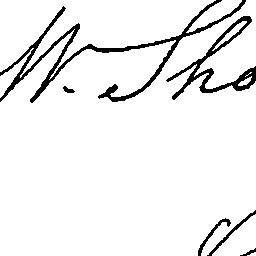 W. Sho